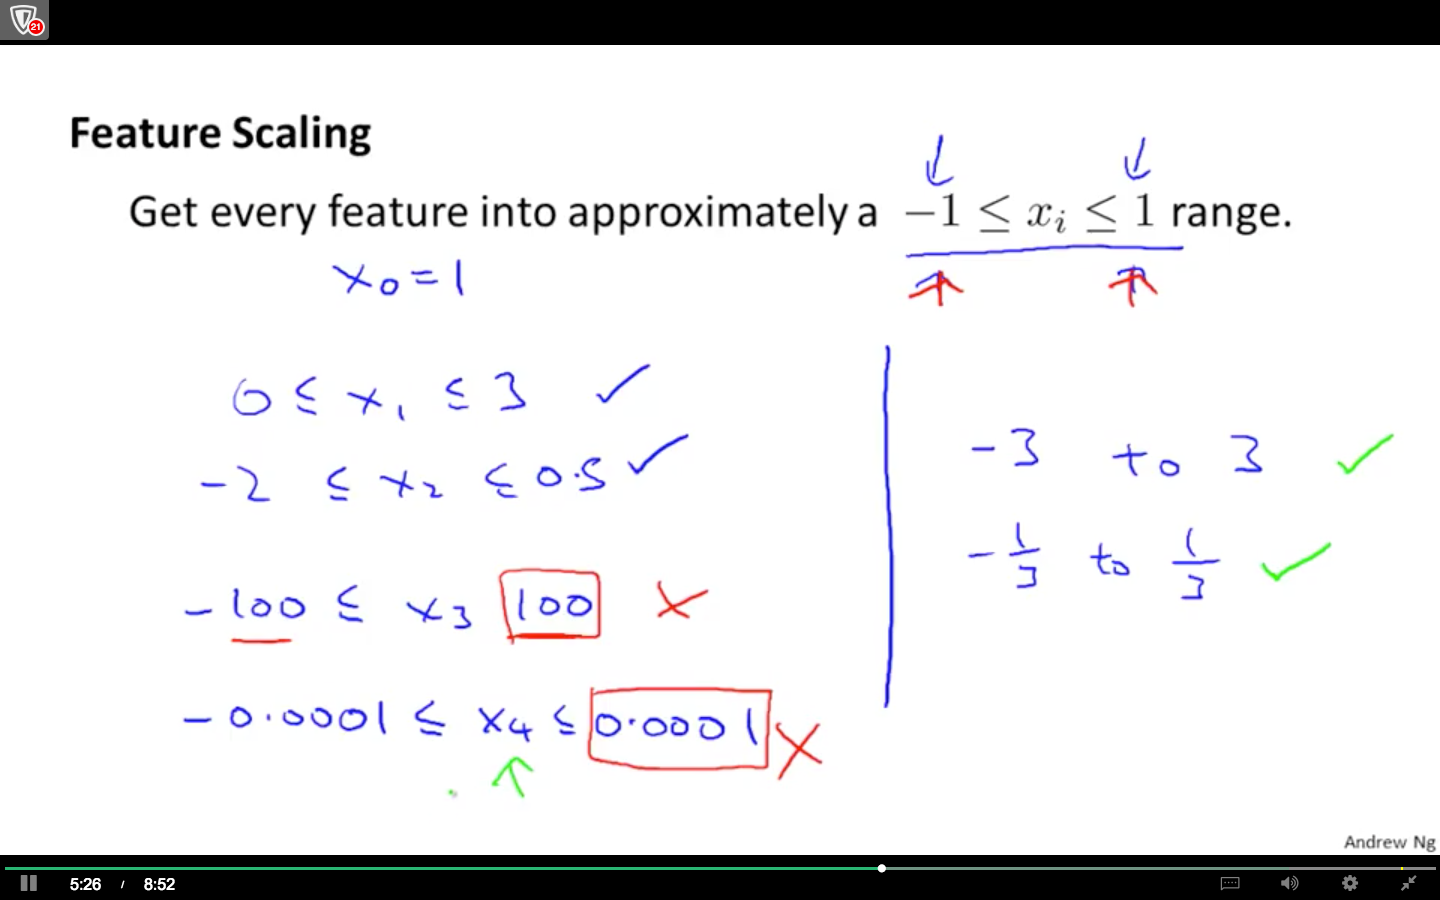 21
Feature Scaling
Get every feature into approximately a −1 ≤ xᵢ ≤ 1 range.
x₀ = 1
0 ≤ x₁ ≤ 3 ✓
-2 ≤ x₂ ≤ 0.5 ✓
-100 ≤ x₃ 100 ✗
-0.0001 ≤ x₄ ≤ 0.0001 ✗
-3 to 3 ✓
-1/3 to 1/3 ✓
Andrew Ng
5:26 / 8:52